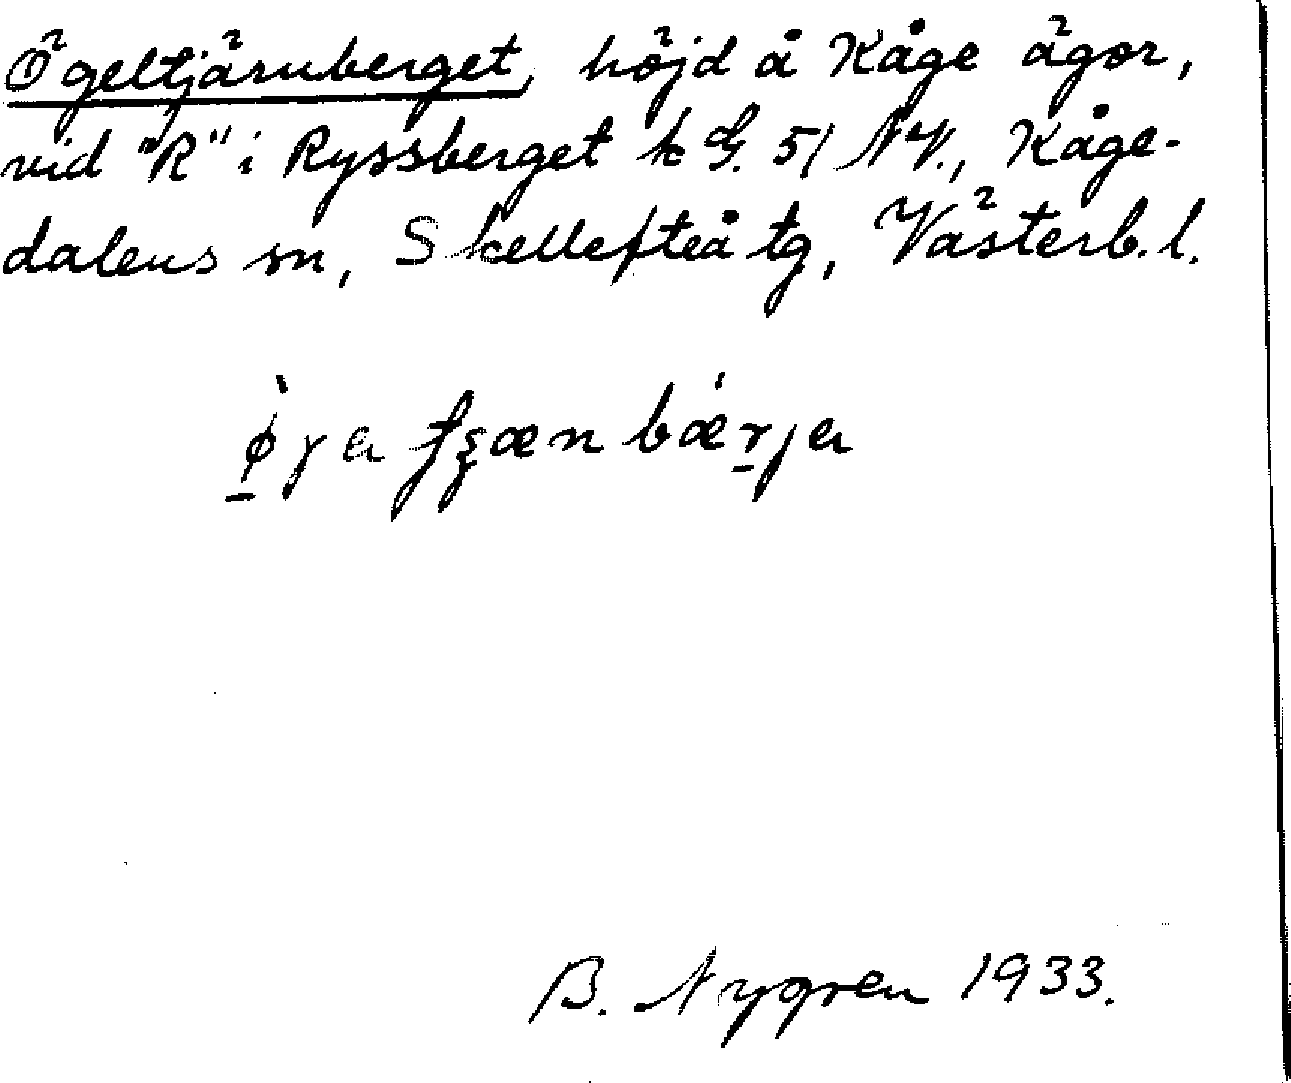 Ögeltjärnberget, höjd å Kåge ägor,
vid "R" i Ryssberget k G. 51 NV., Kåge-
dalens sn, Skellefteå tg, Västerb. l.
B. Nygren 1933.